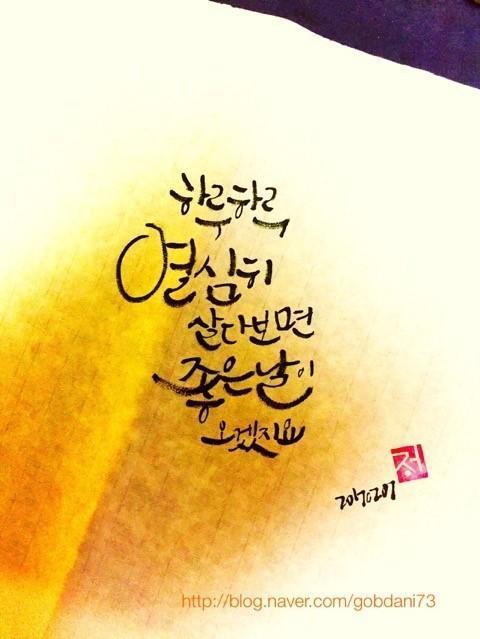 하루하루
열심히
살다보면
좋은날이
오겠지요
정
http://blog.naver.com/gobdani73